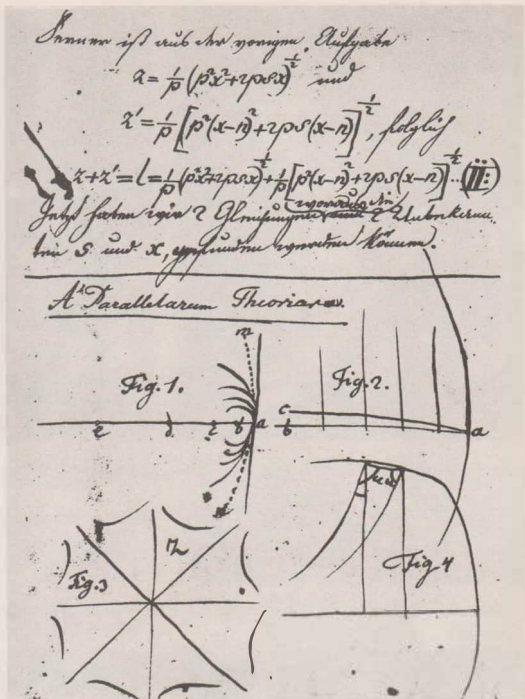 Ferner ist aus der vorigen Aufgabe
z = 1/p (p²x²+2psx)^1/2 und
z' = 1/p [p²(x-n)²+2ps(x-n)]^1/2, folglich
z+z' = l = 1/p (p²x²+2psx)^1/2 + 1/p [p²(x-n)²+2ps(x-n)]^1/2 ... (III:)
Jetzt haben wir 2 Gleichungen woraus die 2 Unbekann
ten s und x, gefunden werden können.
A Parallelarum Theoria
m
Fig. 1.
Fig. 2.
c
e d c b a b a
n
Fig. 3
Fig 4